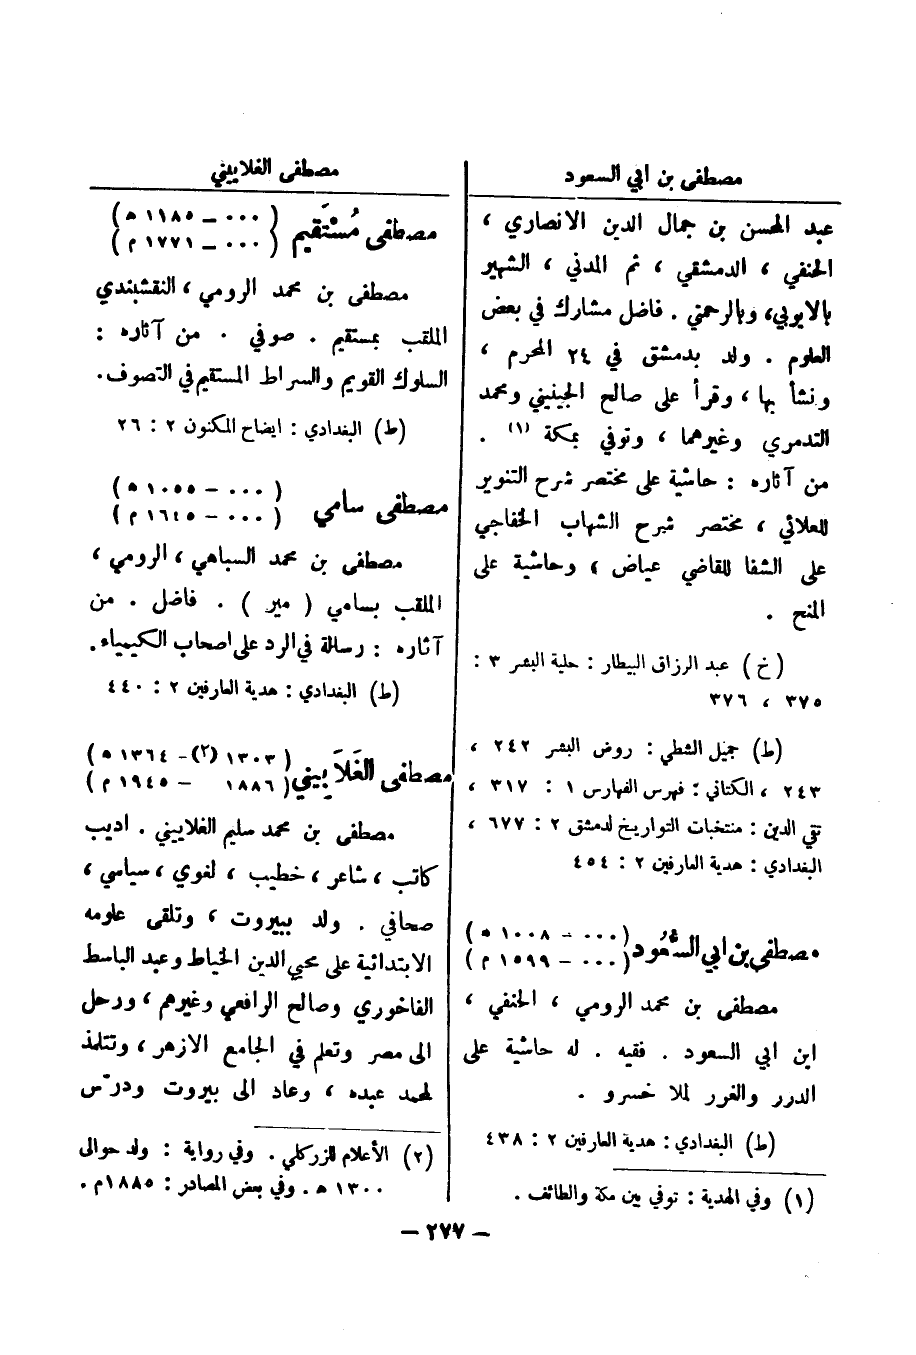 مصطفى بن ابي السعود
عبد المحسن بن جمال الدين الانصاري ،
الحنفي ، الدمشقي ، ثم المدني ، الشهير
بالايوبي، وبالرحمتي . فاضل مشارك في بعض
العلوم . ولد بدمشق في ٢٤ المحرم ،
ونشأ بها ، وقرأ على صالح الجينيني ومحمد
التدمري وغيرهما ، وتوفي بمكة (١) .
من آثاره : حاشية على مختصر شرح التنوير
للعلائي ، مختصر شرح الشهاب الخفاجي
على الشفا للقاضي عياض ، وحاشية على
المنح .
(خ) عبد الرزاق البيطار : حلية البشر ٣ :
٣٧٥ ، ٣٧٦
(ط) جميل الشطي : روض البشر ٢٤٢ ،
٢٤٣ ، الكتاني : فهرس الفهارس ١ : ٣١٧ ،
تقي الدين : منتخبات التواريخ لدمشق ٢ : ٦٧٧ ،
البغدادي : هدية العارفين ٢ : ٤٥٤
مصطفى بن ابي السُّعُود (٠٠٠ - ١٠٠٨ ه)
(٠٠٠ - ١٥٩٩ م)
مصطفى بن محمد الرومي ، الحنفي ،
ابن ابي السعود . فقيه . له حاشية على
الدرر والغرر لملا خسرو .
(ط) البغدادي : هدية العارفين ٢ : ٤٣٨
(١) وفي الهدية : توفي بين مكة والطائف .
مصطفى الغلاييني
مصطفى مُسْتَقيم (٠٠٠ - ١١٨٥ ه)
(٠٠٠ - ١٧٧١ م)
مصطفى بن محمد الرومي ، النقشبندي
الملقب بمستقيم . صوفي . من آثاره :
السلوك القويم والسراط المستقيم في التصوف.
(ط) البغدادي : ايضاح المكنون ٢ : ٢٦
مصطفى سامي (٠٠٠ - ١٠٥٥ ه)
(٠٠٠ - ١٦٤٥ م)
مصطفى بن محمد السباهي ، الرومي ،
الملقب بسامي ( مير ) . فاضل . من
آثاره : رسالة في الرد على اصحاب الكيمياء.
(ط) البغدادي : هدية العارفين ٢ : ٤٤٠
مصطفى الغَلاَييني (١٣٠٣ (٢) - ١٣٦٤ ه)
(١٨٨٦ - ١٩٤٥ م)
مصطفى بن محمد سليم الغلاييني . اديب
كاتب ، شاعر ، خطيب ، لغوي ، سياسي ،
صحافي . ولد ببيروت ، وتلقى علومه
الابتدائية على محيي الدين الخياط وعبد الباسط
الفاخوري وصالح الرافعي وغيرهم ، ورحل
الى مصر وتعلم في الجامع الازهر ، وتتلمذ
لمحمد عبده ، وعاد الى بيروت ودرّس
(٢) الأعلام للزركلي . وفي رواية : ولد حوالى
١٣٠٠ ه . وفي بعض المصادر : ١٨٨٥ م .
- ٢٧٧ -